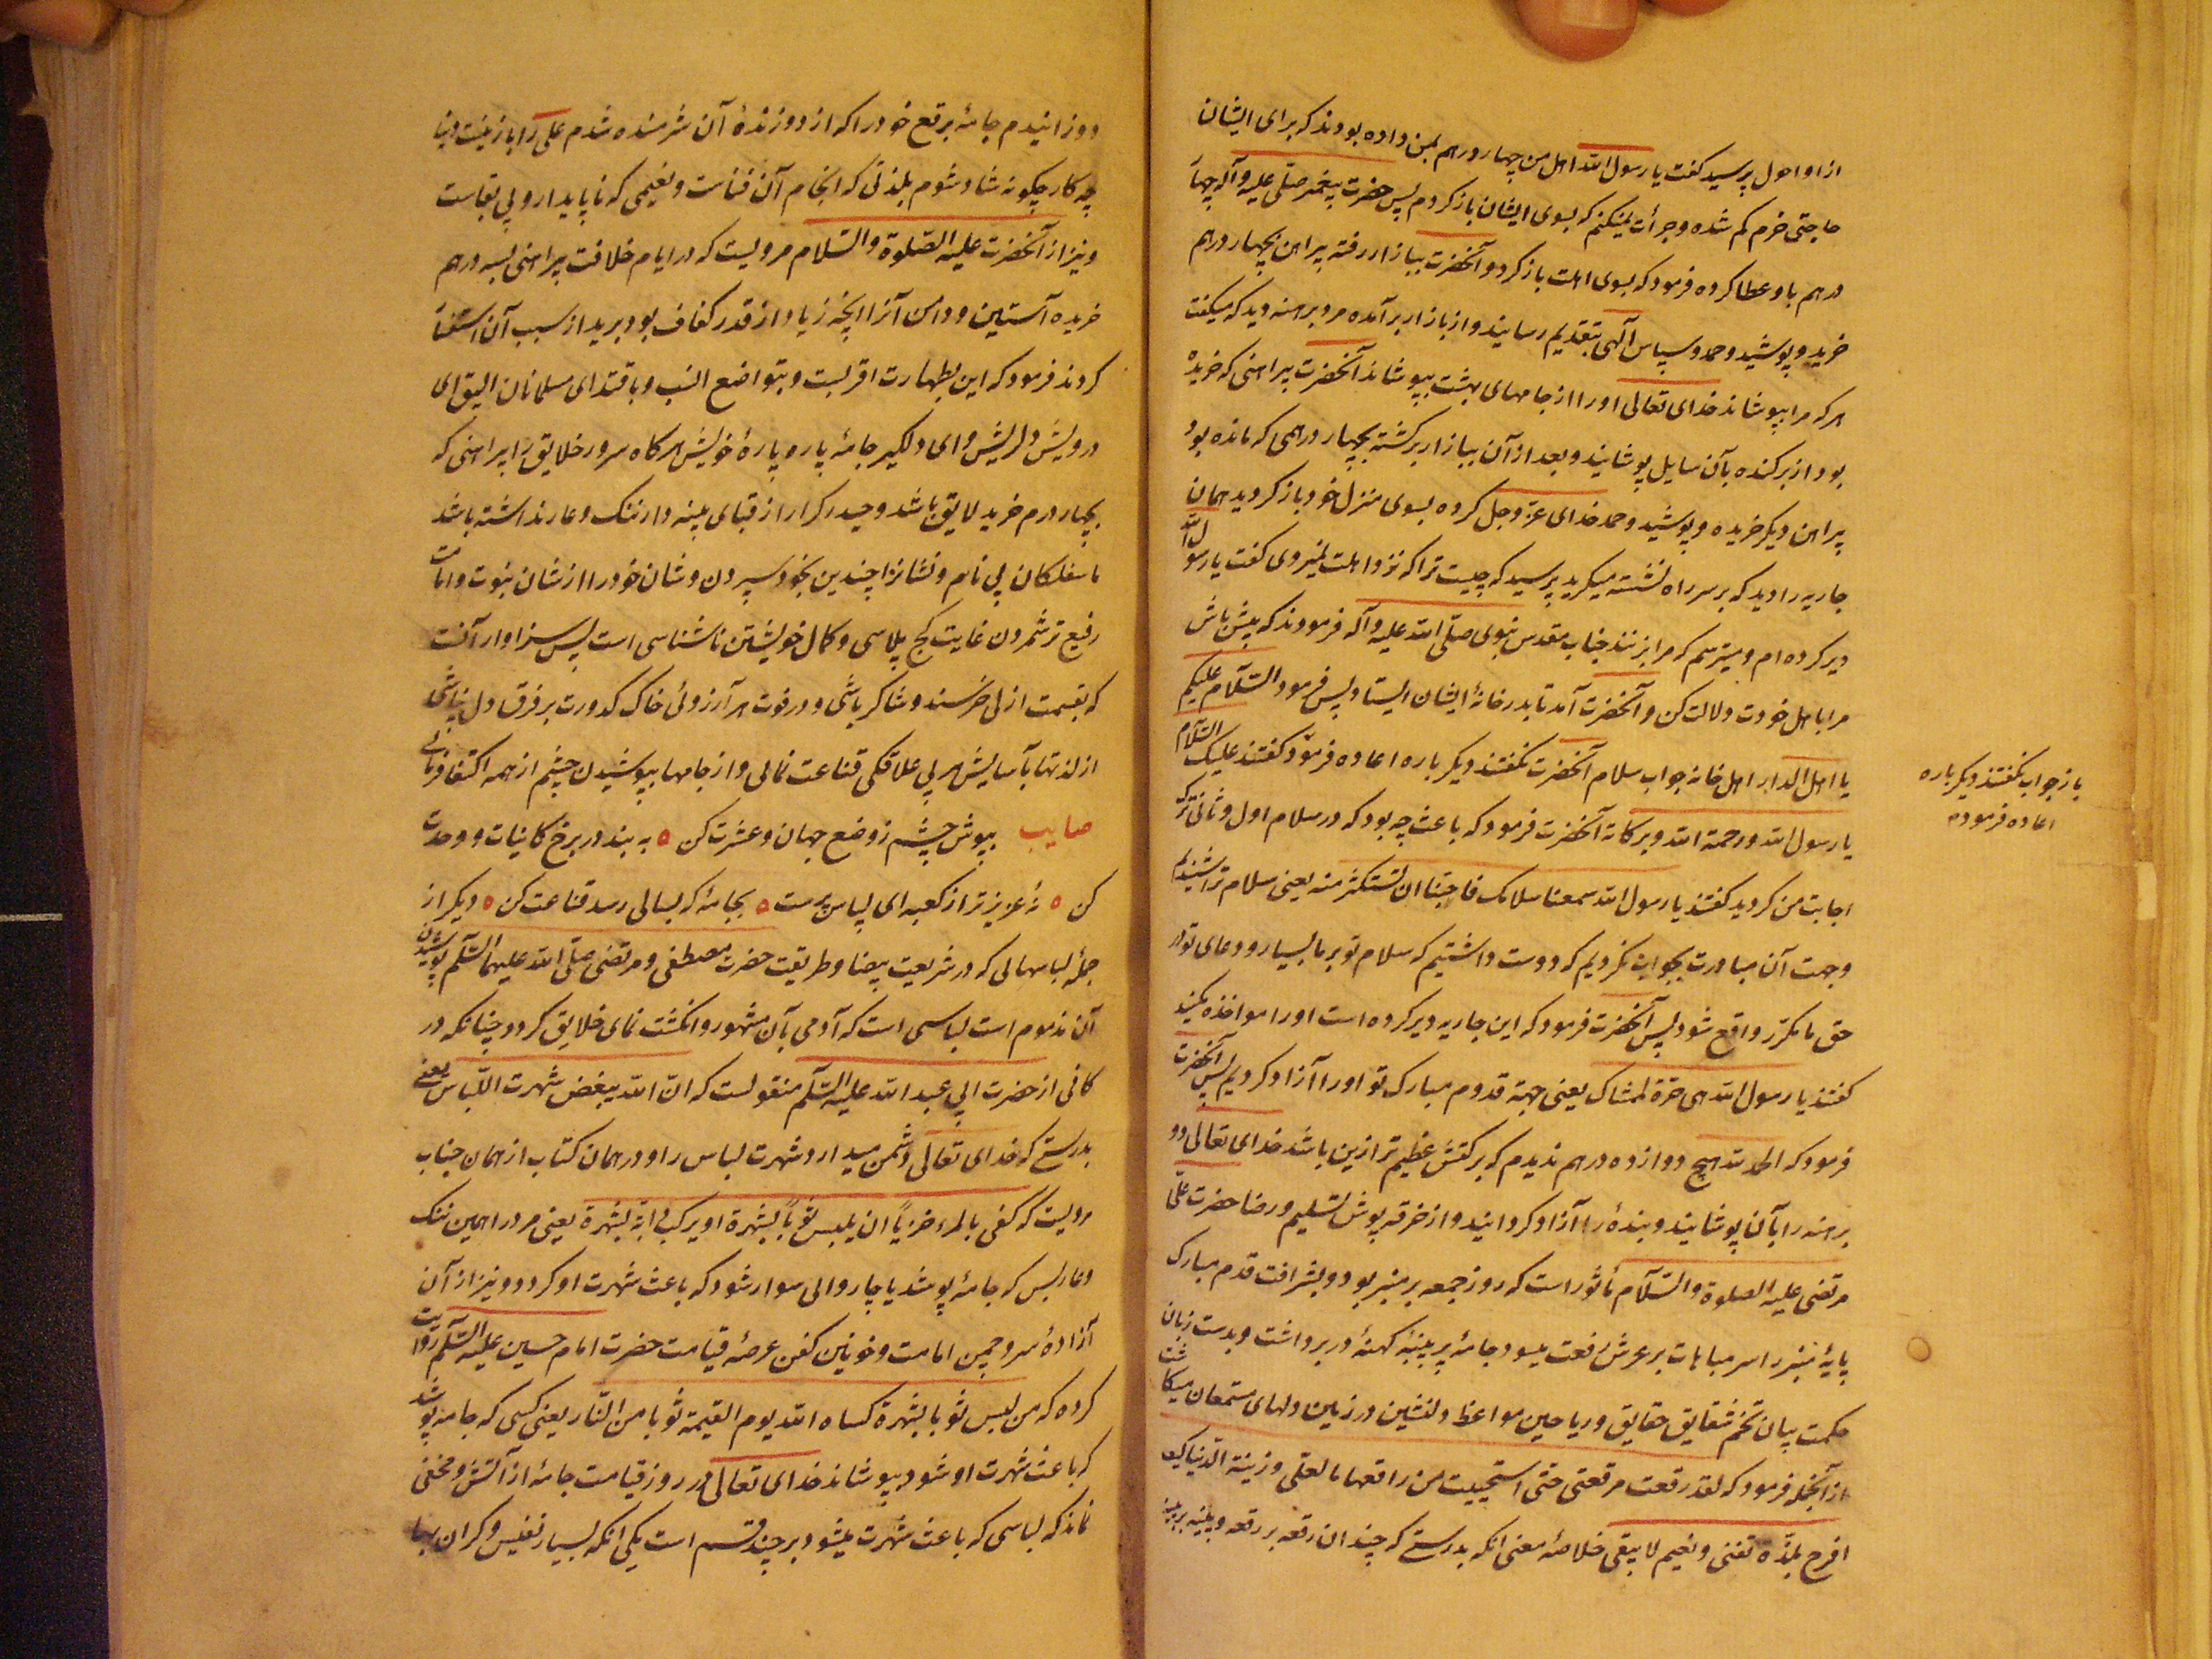 ازو احوال پرسید کفت یا رسول الله اهل من چهار درهم بمن داده بودند که برای ایشان
حاجتی خرم کم شده و جرأت نمیکنم که بسوی ایشان باز کردم پس حضرت پیغمبر صلّی علیه و آله چها
درهم باو عطا کرده فرمود که بسوی اهلت باز کرد و آنحضرت ببازار رفته پیراهن بچهار درهم
خرید و پوشید و حمد و سپاس آلهی بتقدیم رسانید و از بازار برآمده مرد برهنه دید که میکفت
هر که مرا بپوشاند خدای تعالی او را از جامهای بهشت بپوشاند آنحضرت پیراهنی که خریده
بود از بر کنده بآن سایل پوشانید و بعد از آن ببازار برکشته بچهار درهمی که مانده بود
پیراهن دیکر خریده و پوشید و حمد خدای عزّ و جل کرده بسوی منزل خود باز کردید همان
جاریه را دید که بر سر راه نشسته میکرید پرسید که چیست ترا که نزد اهلت نمیروی کفت یا رسول الله
دیر کرده ام و میترسم که مرا بزنند جناب مقدس نبوی صلّی الله علیه و آله فرمودند که پیش باش
مرا باهل خودت دلالت کن و آنحضرت آمد تا بدر خانهٔ ایشان ایستاد پس فرمود السّلام علیکم
یا اهل الدار اهل خانه جواب سلام آنحضرت نکفتند دیکر باره اعاده فرمود کفتند علیک السّلام
باز جواب نکفتند دیکر باره
اعاده فرمودم
یا رسول الله و رحمة الله و برکاته آنحضرت فرمود که باعث چه بود که در سلام اول و ثانی ترک
اجابت من کردید کفتند یا رسول الله سمعنا سلامک فاحببنا ان نستکثر منه یعنی سلام ترا شنیدیم
و جهت آن مبادرت بجواب نکردیم که دوست داشتیم که سلام تو بر ما بسیار و دعای تو در
حق ما مکرّر واقع شود پس آنحضرت فرمود که این جاریه دیر کرده است او را مواخذه مکنید
کفتند یا رسول الله هی حرّة لممشاک یعنی جهة قدوم مبارک تو او را آزاد کردیم پس آنحضرت
فرمود که الحمد لله هیچ دوازده درهم ندیدم که برکتش عظیم تر ازین باشد خدای تعالی دو
برهنه را بآن پوشانید و بندهٔ را آزاد کردانید و از خرقه پوش تسلیم و رضا حضرت علی
مرتضی علیه الصلوة و السّلام مأثور است که روز جمعه بر منبر بود و بشرافت قدم مبارک
پایهٔ منبر را سر مباهات بر عرش رفعت میسود جامهٔ پر پینهٔ کهنهٔ در بر داشت و بدست زبان
حکمت بیان تخم شقایق حقایق و ریاحین مواعظ دلنشین در زمین دلهای مستمعان میکاشت
از آنجمله فرمود که لقد رقعت مرقعتی حتی استحییت من راقعها ما لعلی و زینة الدّنیا کیف
افرح بلذّة تفنی و نعیم لا یبقی خلاصهٔ معنی انکه بدرستی که چندان رقعه بر رقعه و پینه بر پینه
دوزانیدم جامهٔ برقع خود را که از دوزندهٔ آن شرمنده شدم علی را با زینت دنیا
چه کار چکونه شاد شوم بلذتی که انجام آن فناست و نعیمی که ناپایدار و بی بقاست
و نیز از آنحضرت علیه الصّلوة و السّلام مرویست که در ایام خلافت پیراهنی بسه درهم
خریده آستین و دامن آنرا آنچه زیاد از قدر کفاف بود برید از سبب آن استفسا
کردند فرمود که این بطهارت اقربست و بتواضع انسب و باقتدای مسلمانان الیق ای
درویش دلریش و ای دلکیر جامهٔ پاره پارهٔ خویش هرکاه سرور خلایق را پیراهنی که
بچهار درم خرید لایق باشد و حیدر کرار از قبای پینه دار ننک و عار نداشته باشد
ما سفلکان بی نام و نشانرا چندین بخود سپردن و شان خود را از شان نبوت و امامت
رفیع تر شمردن غایت کج پلاسی و کمال خویشتن ناشناسی است پس سزاوار آنست
که بقسمت ازلی خرسند و شاکر باشی و در فوت هر آرزوئی خاک کدورت بر فرق دل نپاشی
از لذتها بآسایش بی علاقکی قناعت نمائی و از جامها بپوشیدن چشم از همه اکتفا فرمائی
صایب بپوش چشم ز وضع جهان و عشرت کن ه به بند در برخ کاینات و وحدت
کن ه نهٔ عزیزتر از کعبه ای لباس پرست ه بجامهٔ که بسالی رسد قناعت کن ه دیکر از
جملهٔ لباسهائی که در شریعت بیضا و طریقت حضرت مصطفی و مرتضی صلّی الله علیهما السّلم پوشیدن
آن مذموم است لباسی است که آدمی بآن مشهور و انکشت نمای خلایق کردد چنانکه در
کافی از حضرت ابی عبد الله علیه السّلم منقولست که انّ الله یبغض شهرت اللّباس یعنی
بدرستی که خدای تعالی دشمن میدارد شهرت لباس را و در همان کتاب از همان جناب
مرویست که کفی بالمرء خزیاً ان یلبس ثوباً یشهره او یرکب دابّة یشهره یعنی مرد را همین ننک
و عار بس که جامهٔ پوشد یا چاروائی سوار شود که باعث شهرت او کردد و نیز از آن
آزادهٔ سرو چمن امامت و خونین کفن عرصهٔ قیامت حضرت امام حسین علیه السّلم روایت
کرده که من لبس ثوبا یشهره کساه الله یوم القیمة ثوبا من النّار یعنی کسی که جامه پوشد
که باعث شهرت او شود بپوشاند خدای تعالی در روز قیامت جامهٔ از آتش و مخفی
نماند که لباسی که باعث شهرت میشود بر چند قسم است یکی انکه بسیار نفیس و کران بها